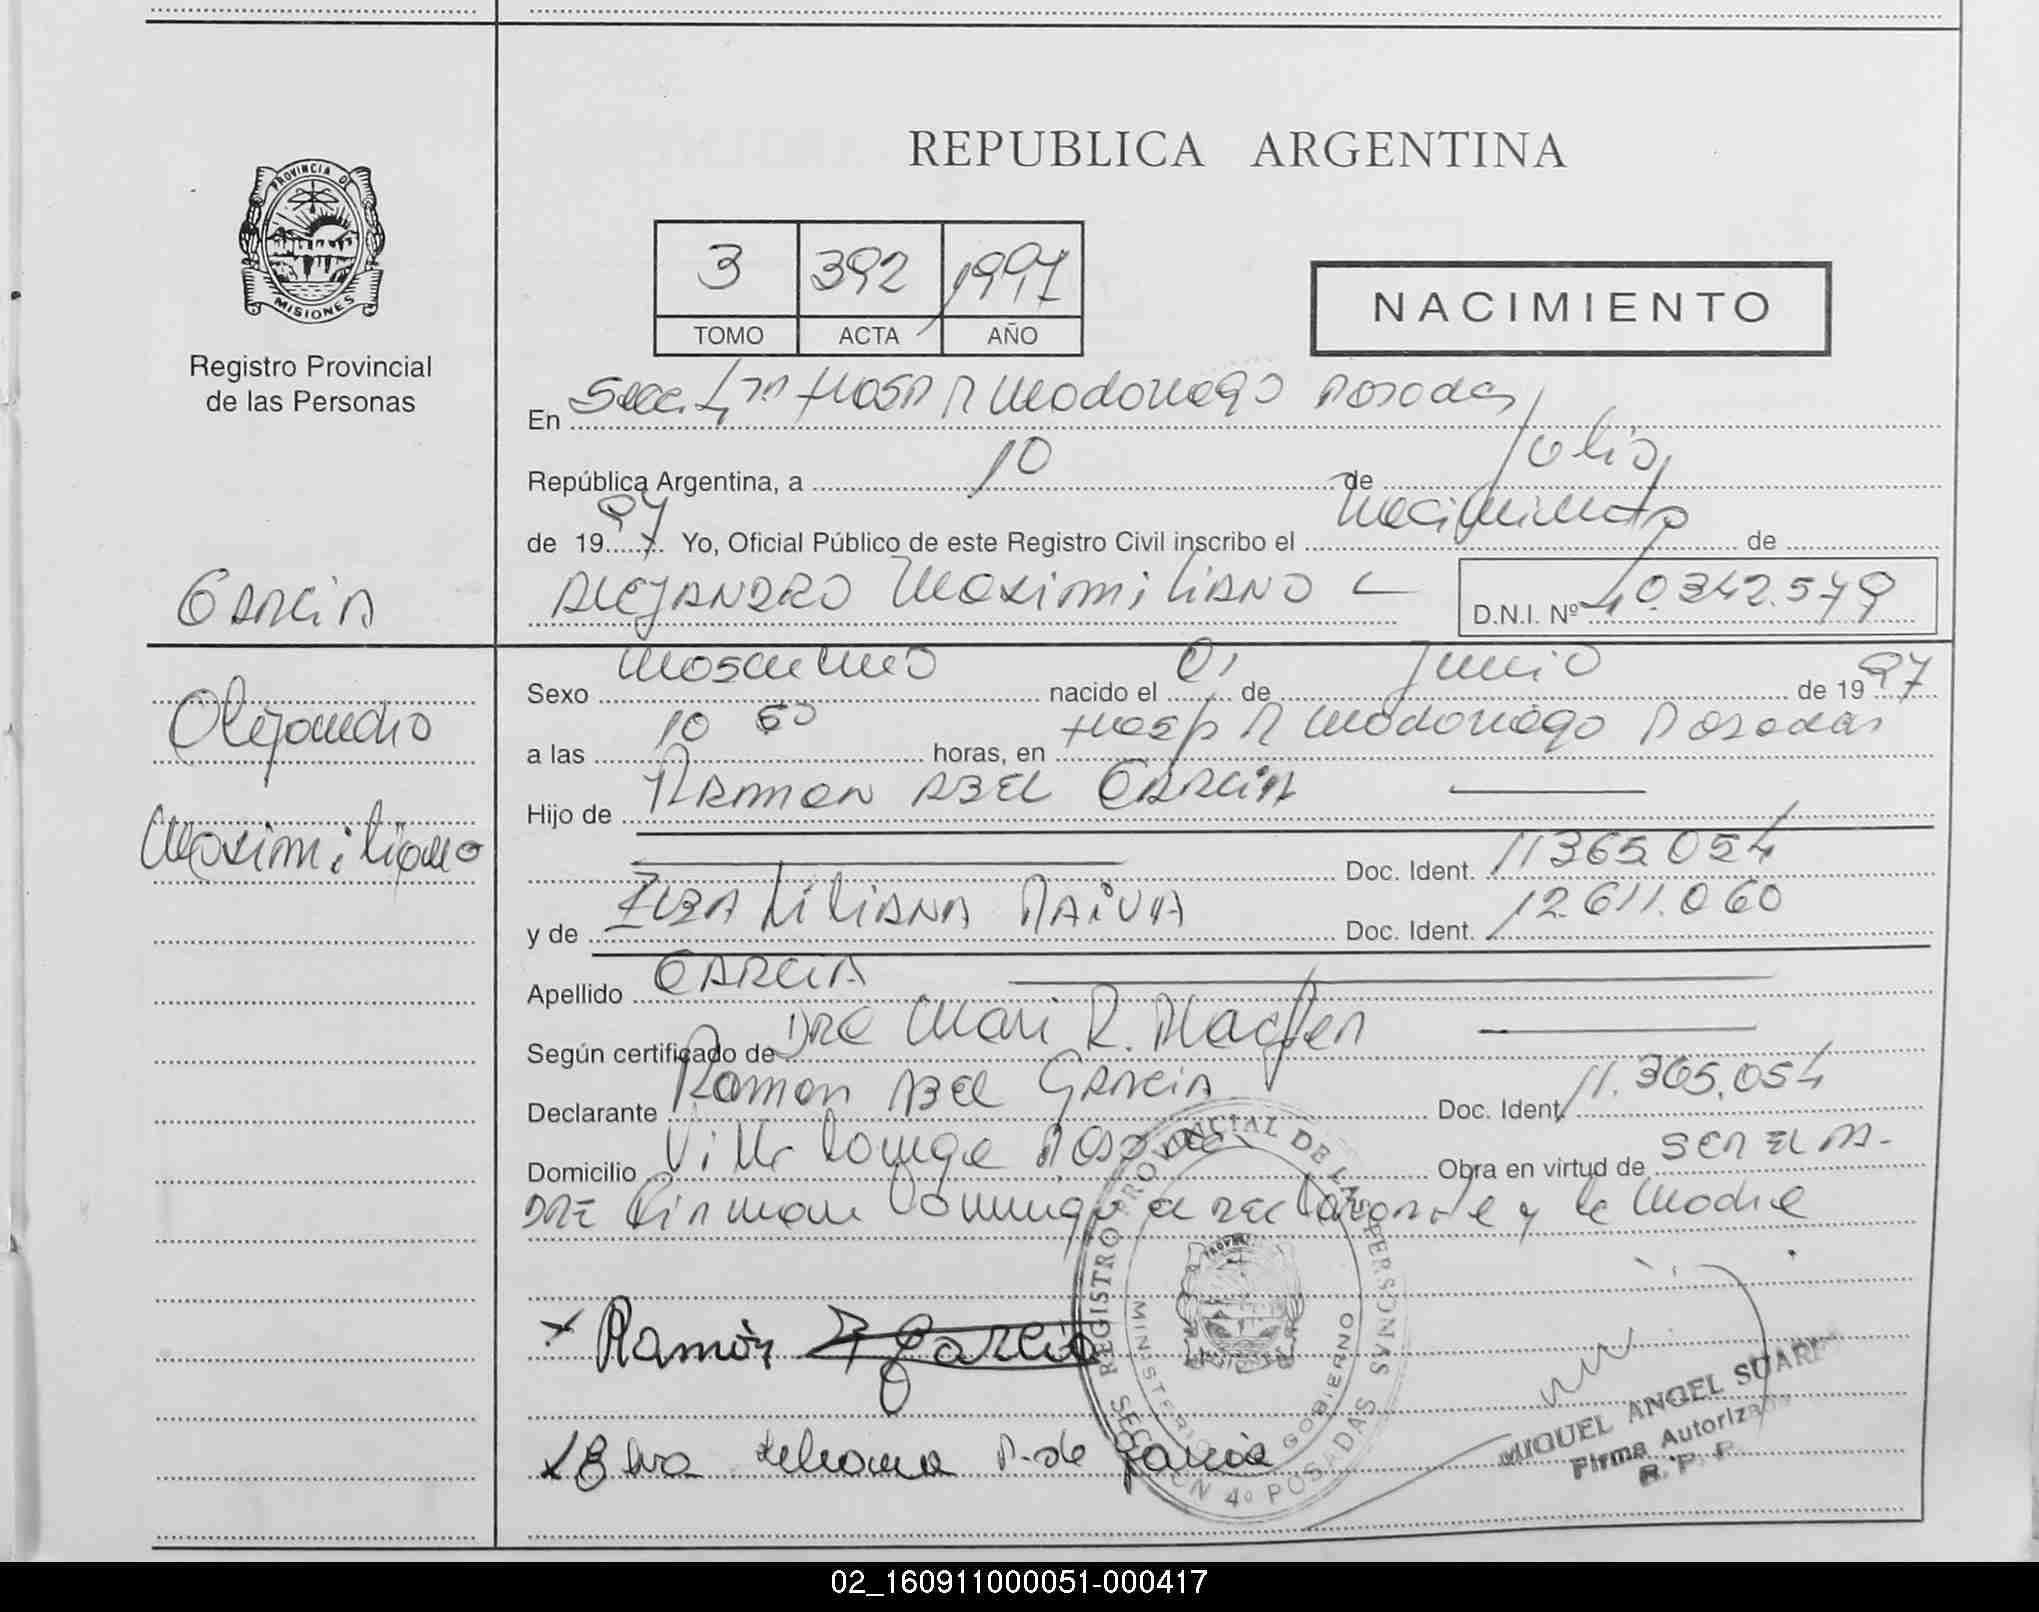 REPUBLICA ARGENTINA
PROVINCIA DE
MISIONES
Registro Provincial
de las Personas
3 392 1997
TOMO ACTA AÑO
NACIMIENTO
En Secc. 4ta Hosp R Madariaga Posadas
República Argentina, a 10 de Julio
de 1997 Yo, Oficial Público de este Registro Civil inscribo el Nacimiento de
GARCIA
ALEJANDRO MAXIMILIANO D.N.I. Nº 40.342.579
Alejandro
Maximiliano
Sexo Masculino nacido el 01 de Junio de 1997
a las 10 horas, en Hosp R Madariaga Posadas
Hijo de RAMON ABEL GARCIA
Doc. Ident. 11365.054
y de ELBA LILIANA PAIVA Doc. Ident. 12.611.060
Apellido GARCIA
Según certificado de DRA R.
Declarante Ramon ABEL GARCIA Doc. Ident. 11.365.054
Domicilio Villa Posadas Obra en virtud de SER EL PA-
DRE Firman Conmigo el declarante y la Madre
Ramón A García
Elva Liliana P. de García
REGISTRO PROVINCIAL DE LAS PERSONAS
MINISTERIO GOBIERNO
SECCION 4º POSADAS
MIGUEL ANGEL SUAREZ
Firma Autorizada
R. P. P.
02_160911000051-000417